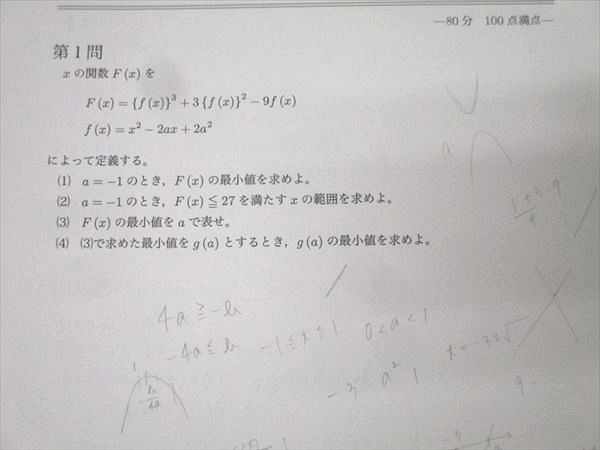 ―80分 100点満点―
第1問
xの関数F(x)を
F(x) = {f(x)}³ + 3{f(x)}² − 9f(x)
f(x) = x² − 2ax + 2a²
によって定義する。
(1) a = −1のとき，F(x)の最小値を求めよ。
(2) a = −1のとき，F(x) ≦ 27を満たすxの範囲を求めよ。
(3) F(x)の最小値をaで表せ。
(4) (3)で求めた最小値をg(a)とするとき，g(a)の最小値を求めよ。
a
1+3-9
4
4a ≧ -b
-4a ≤ b -1 ≤ x ≤ 1 0 < a < 1
-3 a² 1
9